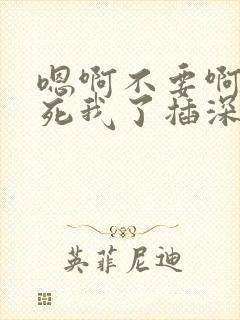 嗯啊不要啊
死我了插深
英菲尼迪